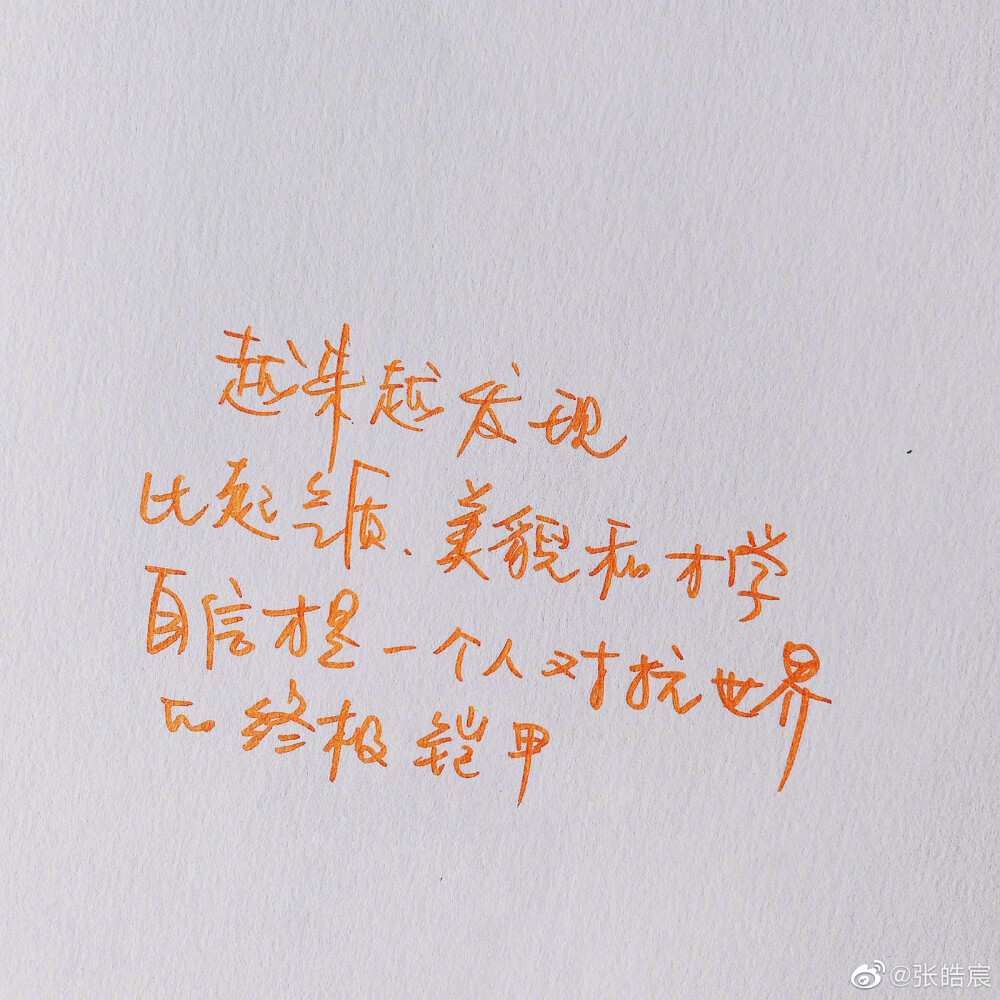 越来越发现
比起气质、美貌和才学
自信才是一个人对抗世界
的终极铠甲
@张皓宸